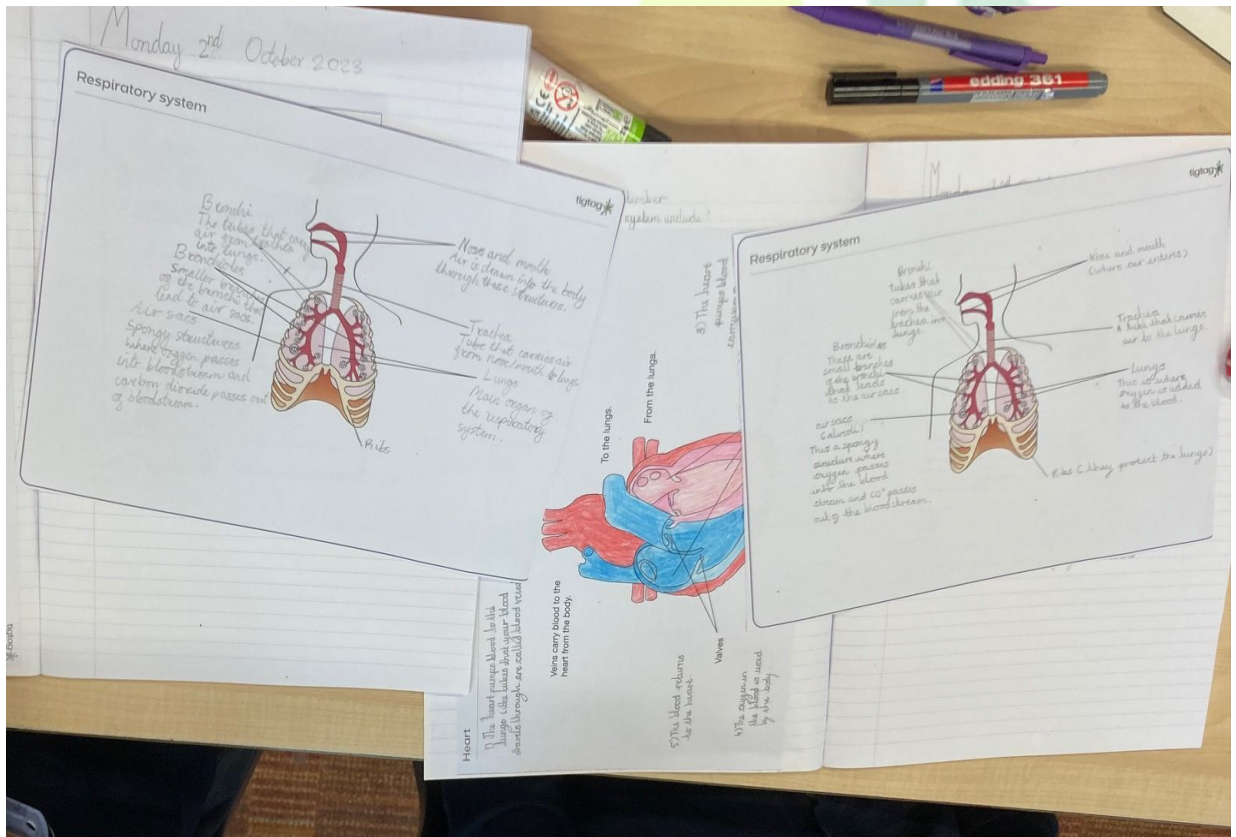 Monday 2nd October 2023
Respiratory system
tigtag
Bronchi
The tubes that carry
air from trachea
into lungs.
Bronchioles
smaller branches
of the bronchi that
lead to air sacs.
Air sacs
Spongy structures
where oxygen passes
into bloodstream and
carbon dioxide passes out
of bloodstream.
Nose and mouth
Air is drawn into the body
through these structures.
Trachea
Tube that carries air
from nose/mouth to lungs
Lungs
Main organ of
the respiratory
system.
Ribs
edding 361
whiteboard marker
system include
3) The heart
pumps blood
To the lungs.
From the lungs.
Veins carry blood to the
heart from the body.
Valves
5) The blood returns
to the heart.
4) The oxygen in
the blood is used
by the body.
Heart
1) The heart pumps blood to the
lungs
through are called blood
Respiratory system
tigtag
Bronchi
tubes that
carries air
from the
trachea into
lungs.
Bronchioles
These are
small branches
of the bronchi
that leads
to the air sacs.
air sacs
(alveoli)
This a spongy
structure where
oxygen passes
into the blood
stream and CO² passes
out of the bloodstream.
Nose and mouth
(where air enters)
Trachea
A tube that carries
air to the lungs.
Lungs
This is where
oxygen is added
to the blood.
Ribs (they protect the lungs)
tigtag